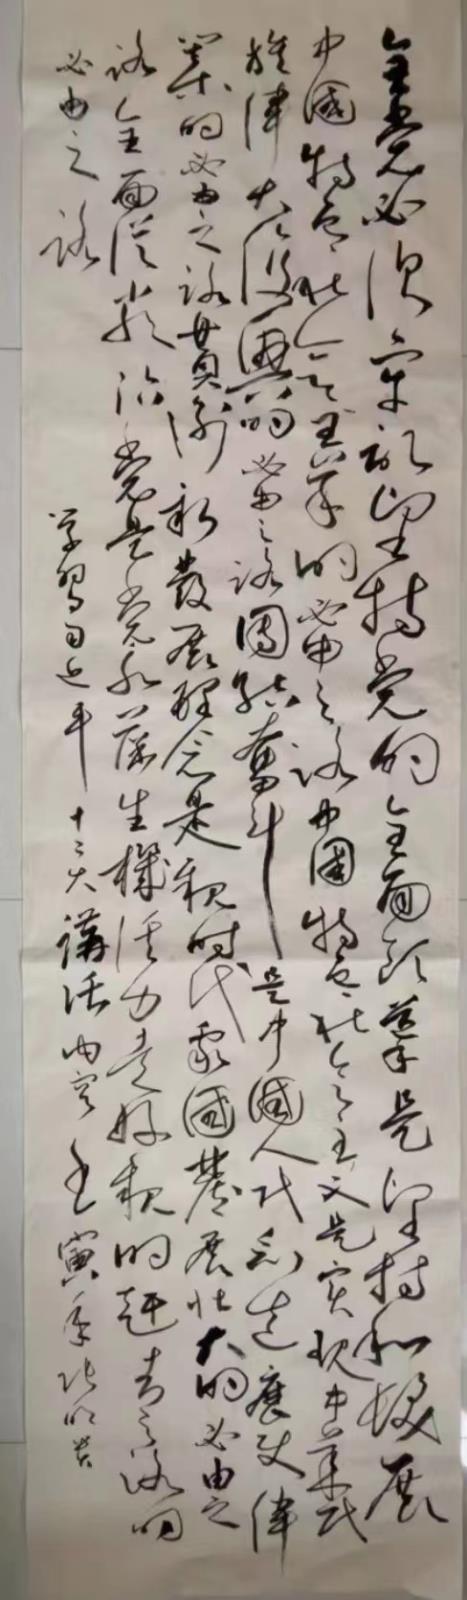 全党必须牢记坚持党的全面领导是坚持和发展
中國特色社会主义的必由之路中國特色社会主义是实现中华民
族伟大復興的必由之路團结奮斗是中國人民创造歷史伟
業的必由之路貫彻新發展理念是新时代我國發展壮大的必由之
路全面從严治党是党永葆生機活力走好新的赶考之路的
必由之路
学習习近平二十大講话内容 壬寅年